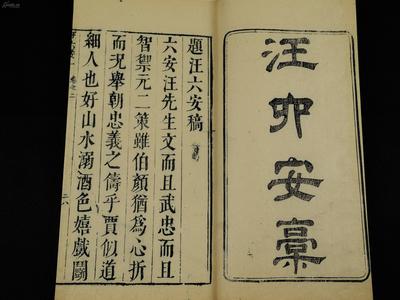 汪六安稾
題汪六安稿
六安汪先生文而且武忠而且
智禦元二策雖伯顏猶爲心折
而况舉朝忠義之儔乎賈似道
細人也好山水溺酒色嬉戲鬭